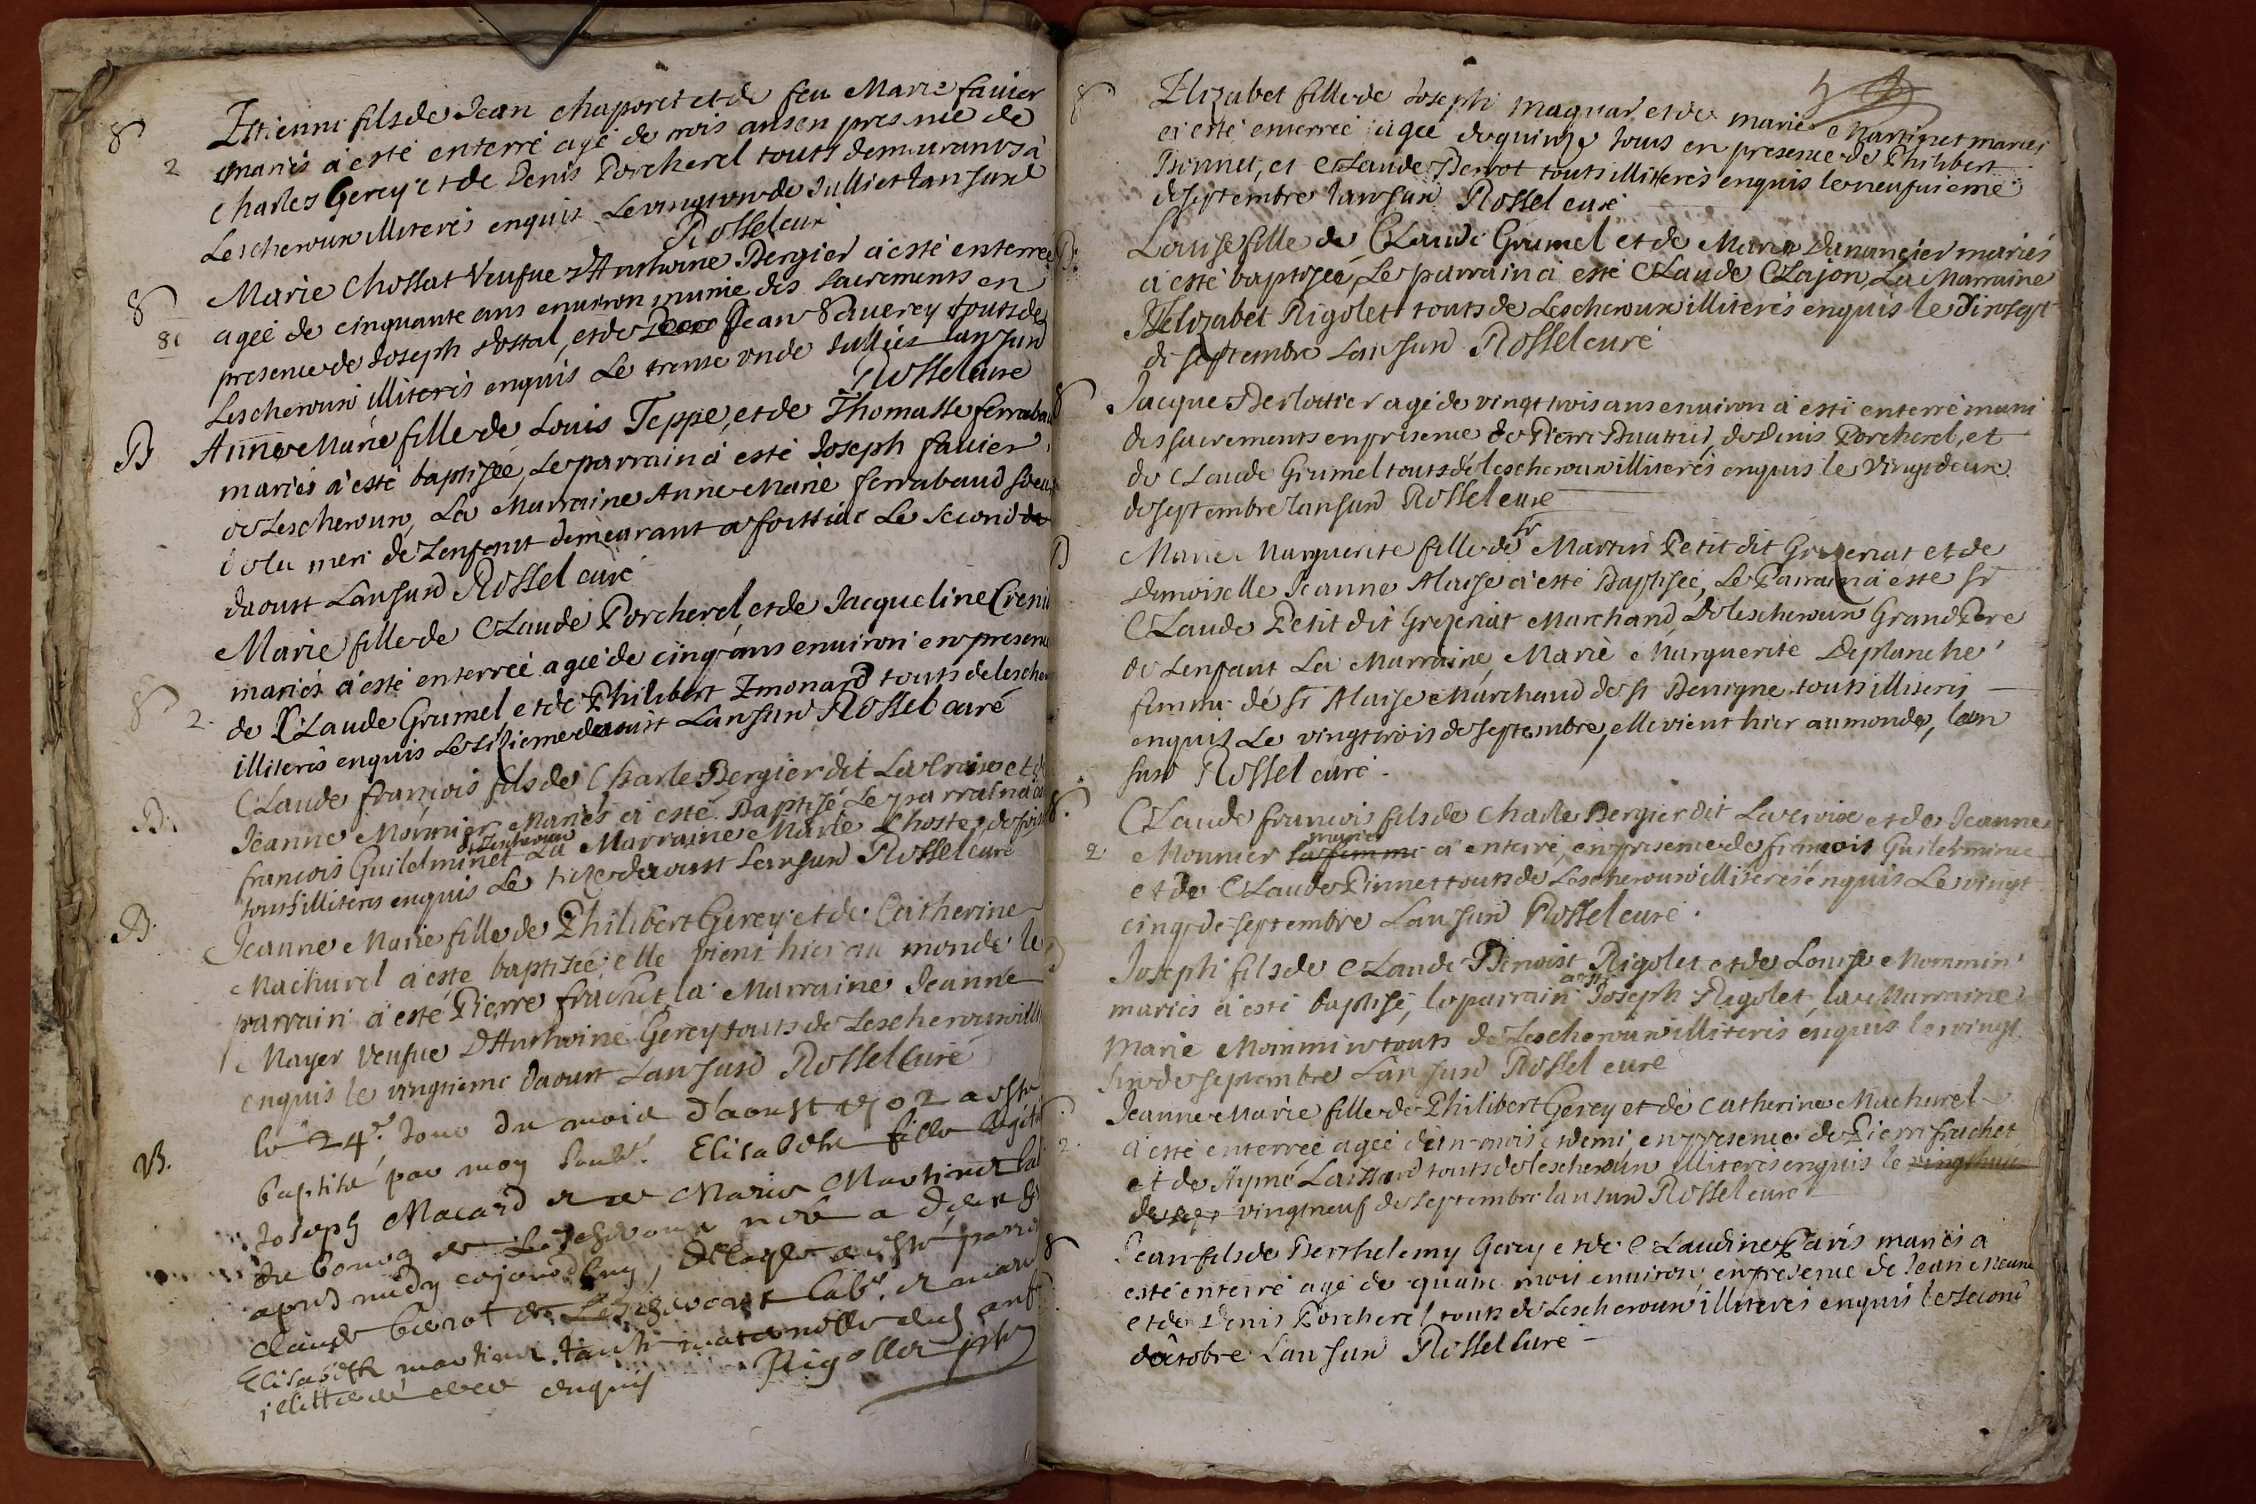 Estienne fils de Jean chaporet et de feu Marie favier
mariés à esté enterré agé de trois ans en presence de
Charles Gerey et de Denis Porcherel touts demeurants à
Lescheroux illiterés enquis Le vingt un de Julliet lan susd
Rossel curé
Marie Chossat Veufue d'Anthoine Bergier à esté enterrée
agée de cinquante ans environ munie des sacrements en
presence de Joseph dostal, et de Jean Sauerey touts de
Lescheroux illiterés enquis Le trente un de Julliet lan susd
Rossel curé
B Anne Marie fille de Louis Teppe, et de Thomasse ferrabaud
mariés à esté baptisée, Le parrain à esté Joseph favier
de Lescheroux, La Marraine Anne Marie ferrabaud soeur
de la mere de Lenfant demeurant a foissiat Le second
daoust Lan susd Rossel curé
Marie fille de Claude Porcherel, et de Jacqueline
mariés à esté enterrée agée de cinq ans environ en presence
2 de Claude Grumel et de Philibert Emonard touts de lescher
illiterés enquis Le sizieme daoust Lan susd Rossel curé
Claude françois fils de Charle Bergier dit La Croix et de
B. Jeanne Monnier Mariés à esté Baptisé Le parrain à
de Lescheroux
françois Guilelminet La Marraine Marie Lhoste de
touts illiterés enquis Le treize daoust Lan susd Rossel curé
B. Jeanne Marie fille de Philibert Gerey et de Catherine
Machurel à esté baptisée, elle vient hier au monde le
parrain à esté Pierre frachet, la Marraine Jeanne
Mayer Veufue D'Anthoine Gerey touts de Lescheroux
enquis le vingtieme Daoust Lan susd Rossel Curé
le 24e. Jour du mois d'aoust 1702 a esté
B. baptisé par moy soub. Elisabeth fille legit
Joseph Macard et de Marie Martinet
du bourg de Lescheroux née a deux
apres midy cejourdhuy, delaquelle a esté parrain
Claude berrot de Lescheroux lab. et marr
Elisabeth martinet tante maternelle dud enf
illitterés enquis Rigollet
Elizabet fille de Joseph maguar, et de marie Martinet mariés
à esté enterrée agée de quinze jours en presence de Philibert
Bonnet, et Claude Berrot touts illiterés enquis le neufuieme
de septembre lan susd Rossel curé
Louise fille de Claude Grumel et de Marie Danancier mariés
à esté baptisée, Le parrain à esté Claude Clajon, La Marraine
Elizabet Rigolet touts de Lescheroux illiterés enquis le dixsept
de septembre Lan susd Rossel curé
Jacque Berlottier agé de vingt trois ans environ à esté enterré muni
des sacrements en presence de Pierre Buattier, de Denis Porcherel, et
de Claude Grumel touts de lescheroux illiterés enquis le Vingt deux
de septembre lan susd Rossel curé
Marie Marguerite fille de sr Martin Petit dit Grezeriat et de
Demoiselle Jeanne Alaise à esté Baptisée, Le Parrain à esté sr
Claude Petit dit Grezeriat Marchand De lescheroux Grand Pere
de Lenfant La Marraine, Marie Marguerite Deplanche
femme dé sr Alaise Marchand de st Benigne touts illiterés
enquis Le vingt trois de septembre, elle vient hier au monde, lan
susd Rossel curé.
Claude francois fils de Charle Bergier dit La croix et de Jeanne
mariés
2 Monnier sa femme à enterré, en presence de francois Guilelminet
et de Claude Pinnet touts de Lescheroux illiterés enquis Le vingt
cinq de septembre Lan susd Rossel curé.
Joseph fils de Claude Benoist Rigolet et de Louise Mommin
mariés à esté baptisé, le parrain à esté Joseph Rigolet la Marraine
Marie Mommin touts de Lescheroux illiterés enquis le vingt
six de septembre Lan susd Rossel curé
Jeanne Marie fille de Philibert Gerey et de Catherine Machurel
2 à esté enterrée agée d'un mois et demi, en presence de Pierre frachet
et de Aymé Laissard touts de lescheroux illiterés enquis le vingt huit
de sept vingt neuf de septembre lan susd Rossel curé
Jean fils de Berthelemy Gerey et de Claudine Paris mariés à
esté enterré agé de quatre mois environ, en presence de Jean
et de Denis Porcherel touts de Lescheroux illiterés enquis le second
doctobre Lan susd Rossel Curé